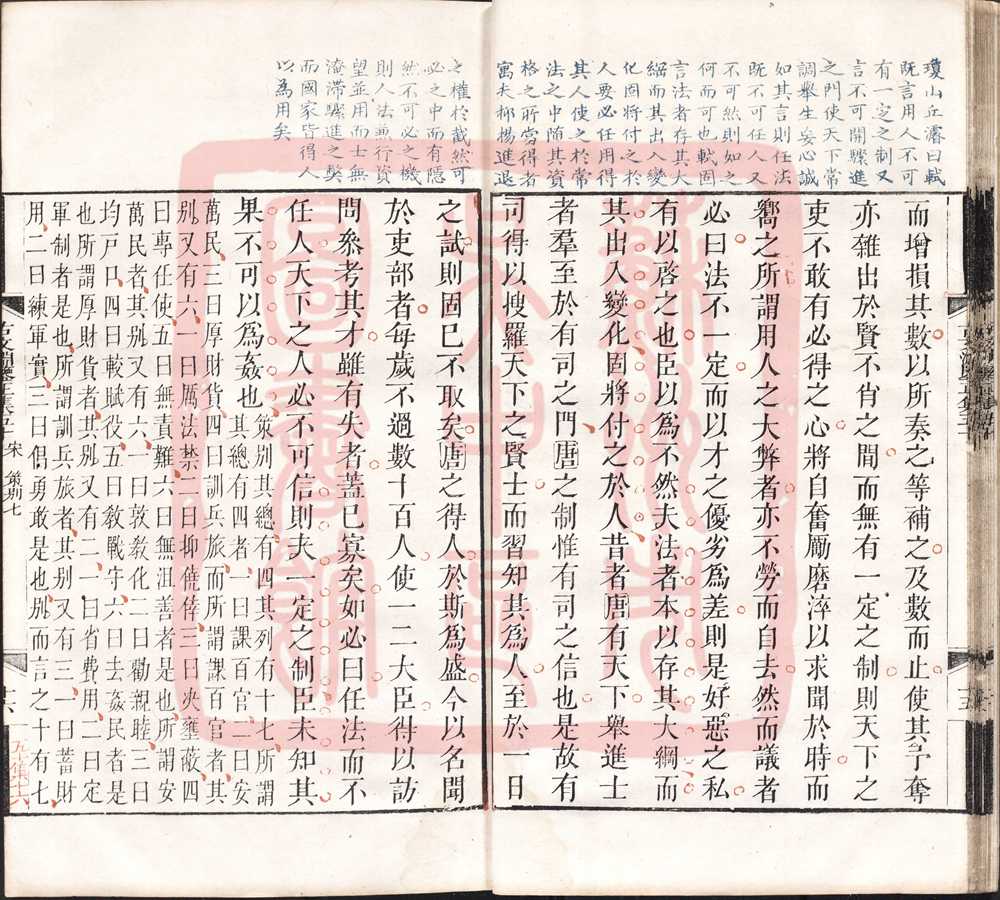 瓊山丘濬曰軾
既言用人不可
有一定之制又
言不可開驟進
之門使天下常
調舉生妄心誠
如其言則任法
既不可任人又
不可然則如之
何而可也軾固
言法者存其大
綱而其出入變
化固將付之於
人要必任用得
其人使之於常
法之中隨其資
格之所當得者
寓夫抑揚進退
之權於截然可
必之中而有隱
然不可必之機
則人法兼行資
望並用而士無
淹滯驟進之獘
而國家皆得人
以為用矣
而增損其數以所奏之等補之及數而止使其予奪
亦雜出於賢不肖之間而無有一定之制則天下之
吏不敢有必得之心將自奮厲磨淬以求聞於時而
嚮之所謂用人之大弊者亦不勞而自去然而議者
必曰法不一定而以才之優劣爲差則是好惡之私
有以啓之也臣以爲不然夫法者本以存其大綱而
其出入變化固將付之於人昔者唐有天下舉進士
者羣至於有司之門唐之制惟有司之信也是故有
司得以搜羅天下之賢士而習知其爲人至於一日
之試則固已不取矣唐之得人於斯爲盛今以名聞
於吏部者每歲不過數十百人使一二大臣得以訪
問叅考其才雖有失者蓋已寡矣如必曰任法而不
任人天下之人必不可信則夫一定之制臣未知其
果不可以爲姦也策别其總有四其列有十七所謂
其總有四者一曰課百官二曰安
萬民三曰厚財貨四曰訓兵旅而所謂課百官者其
别又有六一曰厲法禁二曰抑僥倖三曰决壅蔽四
曰專任使五曰無責難六曰無沮善者是也所謂安
萬民者其别又有六一曰敦敎化二曰勸親睦三曰
均戶口四曰較賦役五曰敎戰守六曰去姦民者是
也所謂厚財貨者其别又有二一曰省費用二曰定
軍制者是也所謂訓兵旅者其别又有三一曰蓄財
用二曰練軍實三曰倡勇敢是也别而言之十有七
宋 策别七